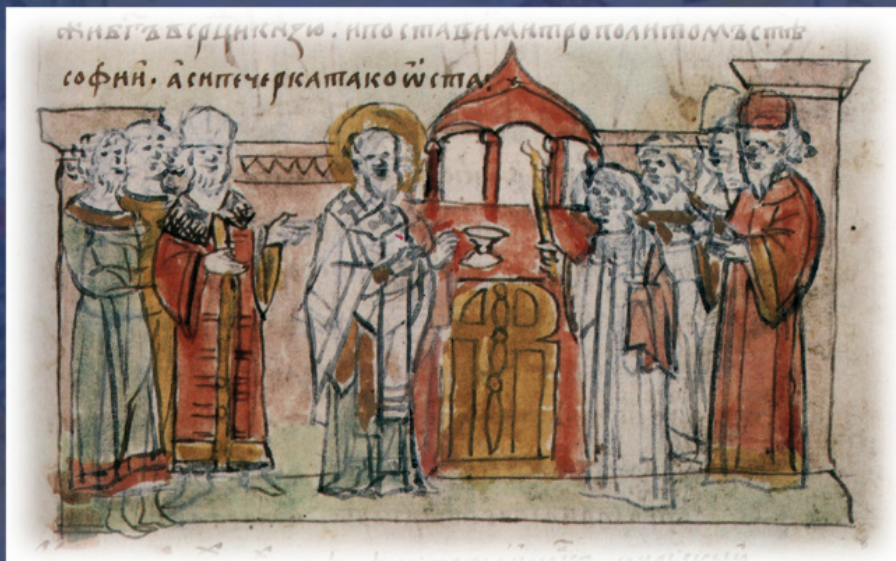 жибгъвсрцикнзю. ипоставимитрополитомъстѣ
софии. асипечеркатакоѡста: